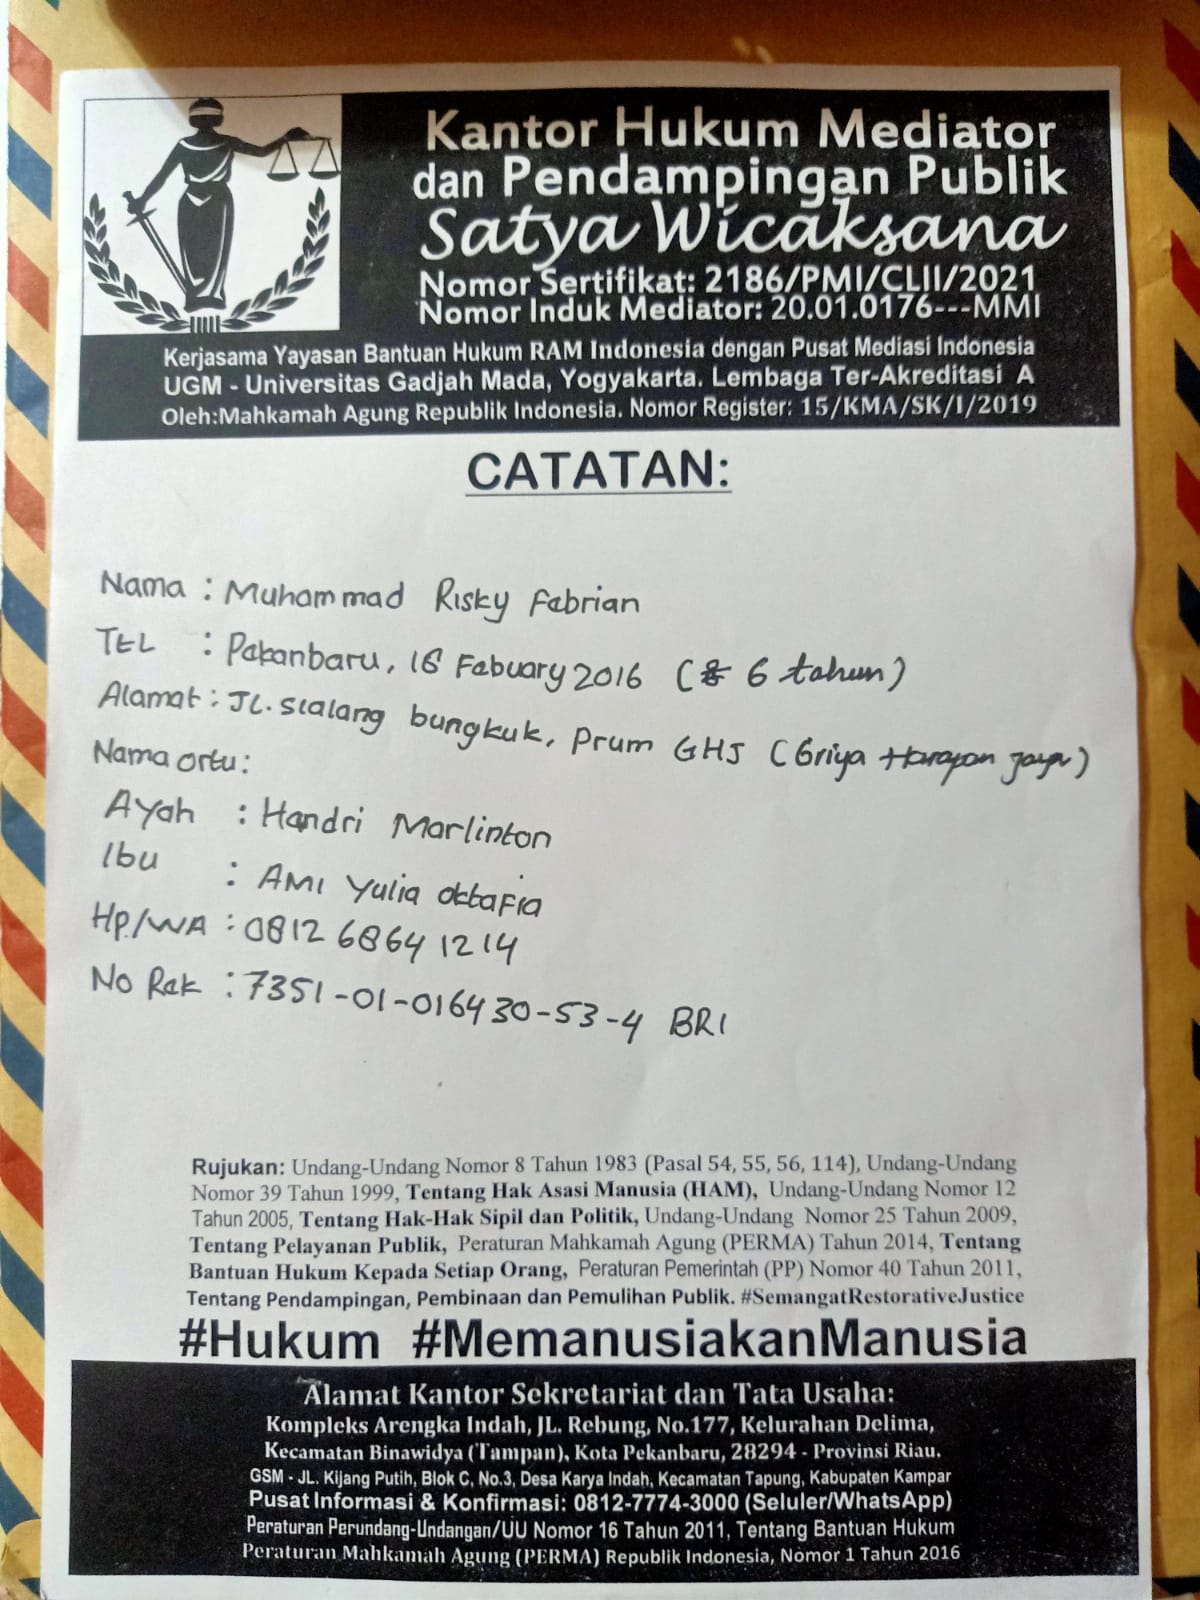 Kantor Hukum Mediator
dan Pendampingan Publik
Satya Wicaksana
Nomor Sertifikat: 2186/PMI/CLII/2021
Nomor Induk Mediator: 20.01.0176---MMI
Kerjasama Yayasan Bantuan Hukum RAM Indonesia dengan Pusat Mediasi Indonesia
UGM - Universitas Gadjah Mada, Yogyakarta. Lembaga Ter-Akreditasi A
Oleh:Mahkamah Agung Republik Indonesia. Nomor Register: 15/KMA/SK/I/2019
CATATAN:
Nama : Muhammad Risky Febrian
TEL : Pekanbaru, 16 Febuary 2016 ( 6 tahun)
Alamat : JL. sialang bungkuk, Prum GHJ (Griya Harapan Jaya)
Nama ortu:
Ayah : Handri Marlinton
Ibu : AMI Yulia Oktafia
Hp/WA : 0812 6864 1214
No Rek : 7351-01-016430-53-4 BRI
Rujukan: Undang-Undang Nomor 8 Tahun 1983 (Pasal 54, 55, 56, 114), Undang-Undang
Nomor 39 Tahun 1999, Tentang Hak Asasi Manusia (HAM), Undang-Undang Nomor 12
Tahun 2005, Tentang Hak-Hak Sipil dan Politik, Undang-Undang Nomor 25 Tahun 2009,
Tentang Pelayanan Publik, Peraturan Mahkamah Agung (PERMA) Tahun 2014, Tentang
Bantuan Hukum Kepada Setiap Orang, Peraturan Pemerintah (PP) Nomor 40 Tahun 2011,
Tentang Pendampingan, Pembinaan dan Pemulihan Publik. #SemangatRestorativeJustice
#Hukum #MemanusiakanManusia
Alamat Kantor Sekretariat dan Tata Usaha:
Kompleks Arengka Indah, JL. Rebung, No.177, Kelurahan Delima,
Kecamatan Binawidya (Tampan), Kota Pekanbaru, 28294 - Provinsi Riau.
GSM - JL. Kijang Putih, Blok C, No.3, Desa Karya Indah, Kecamatan Tapung, Kabupaten Kampar
Pusat Informasi & Konfirmasi: 0812-7774-3000 (Seluler/WhatsApp)
Peraturan Perundang-Undangan/UU Nomor 16 Tahun 2011, Tentang Bantuan Hukum
Peraturan Mahkamah Agung (PERMA) Republik Indonesia, Nomor 1 Tahun 2016